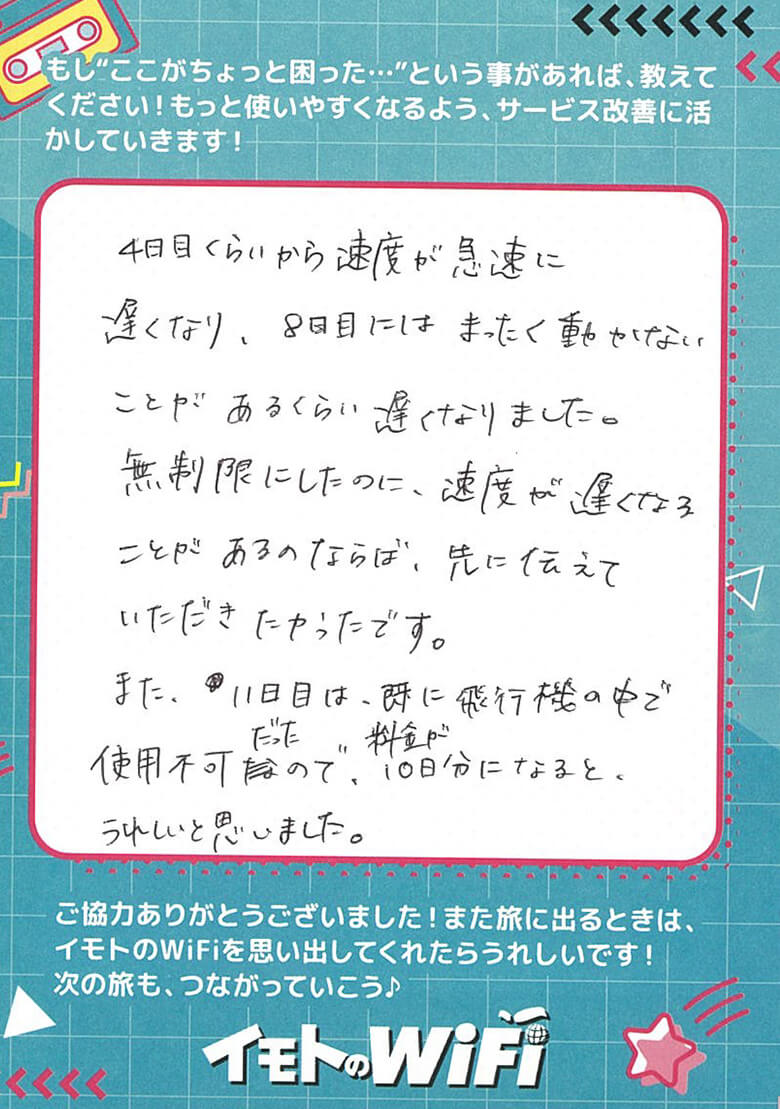 もし“ここがちょっと困った…”という事があれば、教えて
ください！もっと使いやすくなるよう、サービス改善に活
かしていきます！
4日目くらいから速度が急速に
遅くなり、8日目にはまったく動かない
ことがあるくらい遅くなりました。
無制限にしたのに、速度が遅くなる
ことがあるのならば、先に伝えて
いただきたかったです。
また、11日目は、既に飛行機の中で
使用不可だったので、料金が10日分になると、
うれしいと思いました。
ご協力ありがとうございました！また旅に出るときは、
イモトのWiFiを思い出してくれたらうれしいです！
次の旅も、つながっていこう♪
イモトのWiFi